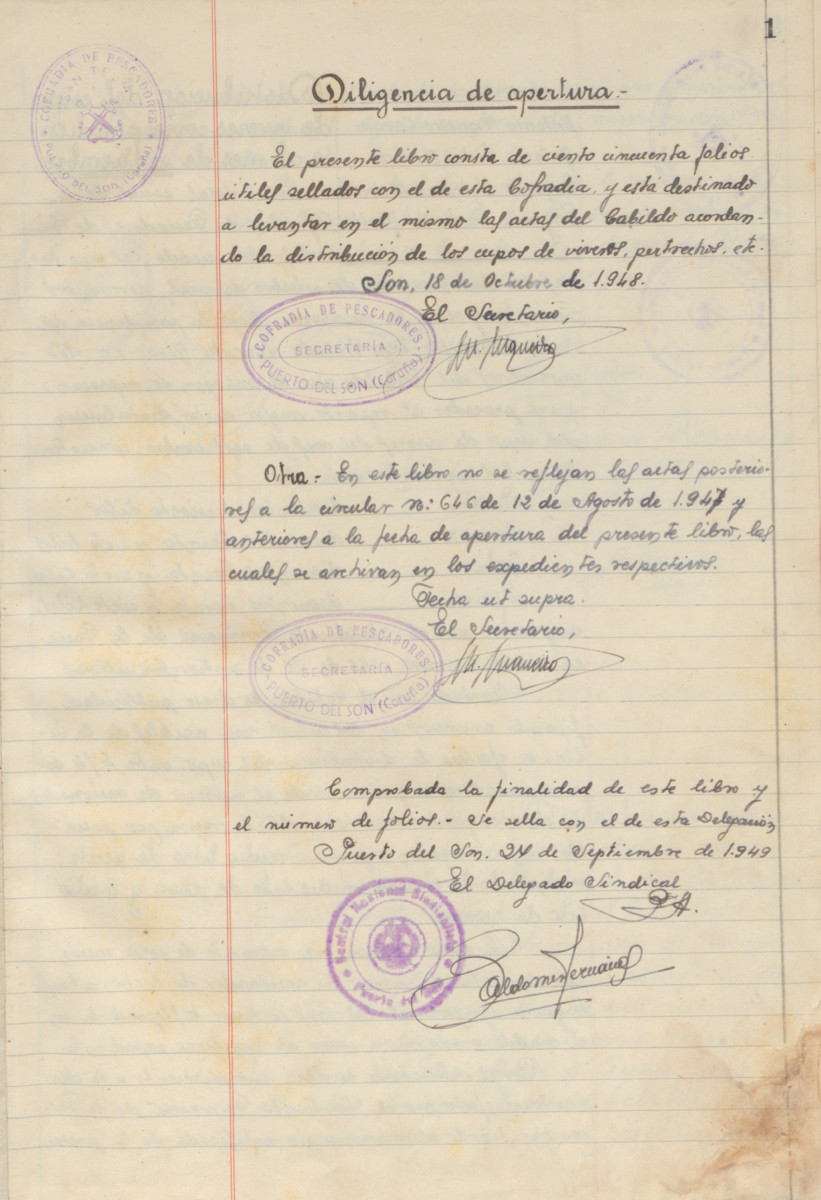 1
COFRADÍA DE PESCADORES
PUERTO DEL SON (Coruña)
Diligencia de apertura.-
El presente libro consta de ciento cincuenta folios
útiles sellados con el de esta Cofradia, y está destinado
a levantar en el mismo las actas del Cabildo acordan-
do la distribución de los cupos de viveres, pertrechos, etc.
Son, 18 de Octubre de 1.948.
El Secretario,
COFRADÍA DE PESCADORES
SECRETARÍA
PUERTO DEL SON (Coruña)
Otra.- En este libro no se reflejan las actas posterio-
res a la circular n.: 646 de 12 de Agosto de 1.947 y
anteriores a la fecha de apertura del presente libro, las
cuales se archivan en los expedientes respectivos.
Fecha ut supra.
El Secretario,
COFRADÍA DE PESCADORES
SECRETARÍA
PUERTO DEL SON (Coruña)
Comprobada la finalidad de este libro y
el número de folios.- Se sella con el de esta Delegación
Puerto del Son. 24 de Septiembre de 1.949
El Delegado Sindical
P.A.
Central Nacional Sindicalista
Puerto del Son